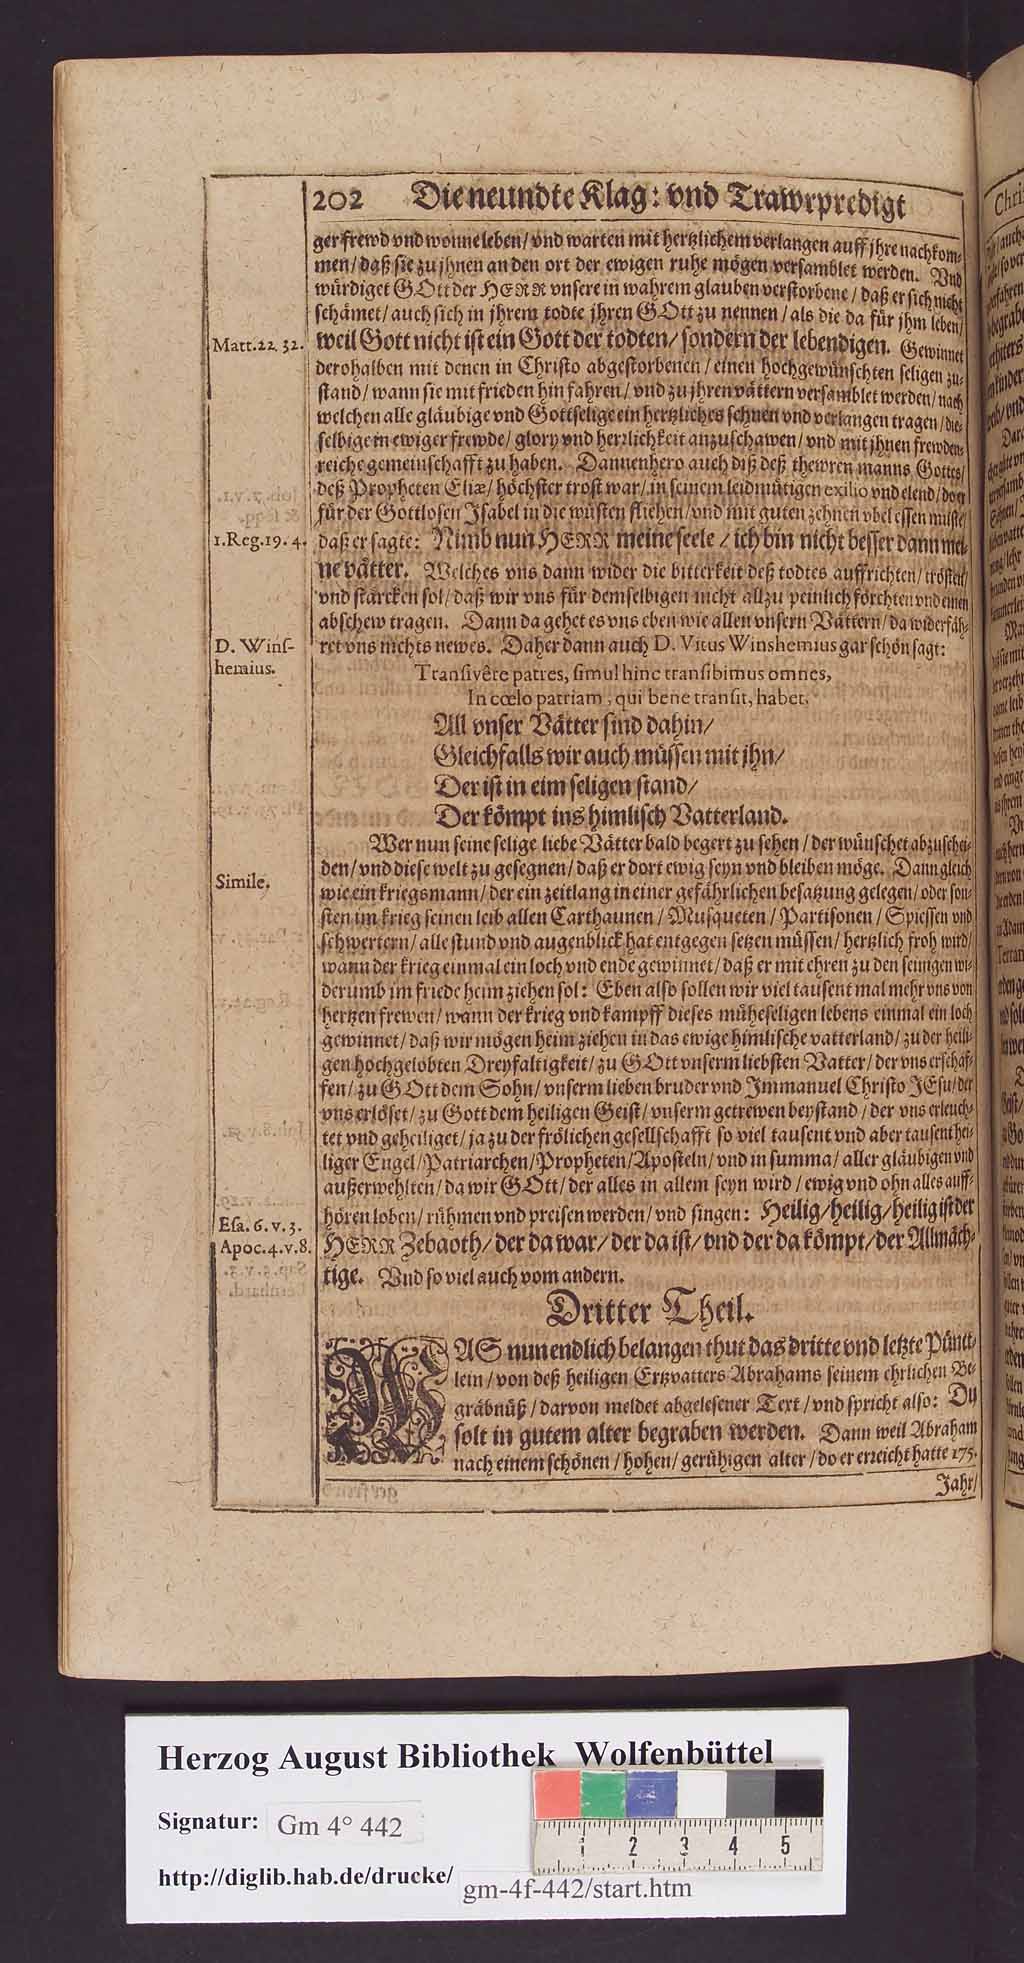 202 Die neundte Klag: vnd Trawrpredigt
ger frewd vnd wonne leben/ vnd warten mit hertzlichem verlangen auff jhre nachkom-
men/ daß sie zu jhnen an den ort der ewigen ruhe mögen versamblet werden. Vnd
würdiget GOtt der HERR vnsere in wahrem glauben verstorbene/ daß er sich nicht
schämet/ auch sich in jhrem todte jhren GOtt zu nennen/ als die da für jhm leben/
Matt. 22. 32.
weil Gott nicht ist ein Gott der todten/ sondern der lebendigen. Gewinnet
derohalben mit denen in Christo abgestorbenen/ einen hochgewünschten seligen zu-
stand/ wann sie mit frieden hin fahren/ vnd zu jhren vättern versamblet werden/ nach
welchen alle gläubige vnd Gottselige ein hertzliches sehnen vnd verlangen tragen/ die-
selbige in ewiger frewde/ glory vnd herrlichkeit anzuschawen/ vnd mit jhnen frewden-
reiche gemeinschafft zu haben. Dannenhero auch diß deß thewren manns Gottes/
deß Propheten Eliæ/ höchster trost war/ in seinem leidmütigen exilio vnd elend/ do er
für der Gottlosen Jsabel in die wüsten fliehen/ vnd mit guten zehnen vbel essen muste/
1. Reg. 19. 4.
daß er sagte: Nimb nun HERR meine seele/ ich bin nicht besser dann mei-
ne vätter. Welches vns dann wider die bitterkeit deß todtes auffrichten/ trösten/
vnd stärcken sol/ daß wir vns für demselbigen nicht allzu peinlich förchten vnd einen
abschew tragen. Dann da gehet es vns eben wie allen vnsern Vättern/ da widerfäh-
D. Wins-
hemius.
ret vns nichts newes. Daher dann auch D. Vitus Winshemius gar schön sagt:
Transivêre patres, simul hinc transibimus omnes,
In cœlo patriam, qui bene transit, habet.
All vnser Vätter sind dahin/
Gleichfalls wir auch müssen mit jhn/
Der ist in eim seligen stand/
Der kömpt ins himlisch Vatterland.
Wer nun seine selige liebe Vätter bald begert zu sehen/ der wünschet abzuschei-
den/ vnd diese welt zu gesegnen/ daß er dort ewig seyn vnd bleiben möge. Dann gleich
Simile.
wie ein kriegsmann/ der ein zeitlang in einer gefährlichen besatzung gelegen/ oder son-
sten im krieg seinen leib allen Carthaunen/ Musqueten/ Partisonen/ Spiessen vnd
schwertern/ alle stund vnd augenblick hat entgegen setzen müssen/ hertzlich froh wird/
wann der krieg einmal ein loch vnd ende gewinnet/ daß er mit ehren zu den seinigen wi-
derumb im friede heim ziehen sol: Eben also sollen wir viel tausent mal mehr vns von
hertzen frewen/ wann der krieg vnd kampff dieses müheseligen lebens einmal ein loch
gewinnet/ daß wir mögen heim ziehen in das ewige himlische vatterland/ zu der heili-
gen hochgelobten Dreyfaltigkeit/ zu GOtt vnserm liebsten Vatter/ der vns erschaf-
fen/ zu GOtt dem Sohn/ vnserm lieben bruder vnd Jmmanuel Christo JEsu/ der
vns erlöset/ zu Gott dem heiligen Geist/ vnserm getrewen beystand/ der vns erleuch-
tet vnd geheiliget/ ja zu der frölichen gesellschafft so viel tausent vnd aber tausent hei-
liger Engel/ Patriarchen/ Propheten/ Aposteln/ vnd in summa/ aller gläubigen vnd
außerwehlten/ da wir GOtt/ der alles in allem seyn wird/ ewig vnd ohn alles auff-
Esa. 6. v. 3.
hören loben/ rühmen vnd preisen werden/ vnd singen: Heilig/ heilig/ heilig ist der
Apoc. 4. v. 8.
HERR Zebaoth/ der da war/ der da ist/ vnd der da kömpt/ der Allmäch-
tige. Vnd so viel auch vom andern.
Dritter Theil.
WAS nun endlich belangen thut das dritte vnd letzte Pünct-
lein/ von deß heiligen Ertzvatters Abrahams seinem ehrlichen Be-
gräbnüß/ darvon meldet abgelesener Text/ vnd spricht also: Du
solt in gutem alter begraben werden. Dann weil Abraham
nach einem schönen/ hohen/ gerühigen alter/ do er erreicht hatte 175.
Jahr/
Herzog August Bibliothek Wolfenbüttel
Signatur: Gm 4° 442
http://diglib.hab.de/drucke/ gm-4f-442/start.htm
1 2 3 4 5